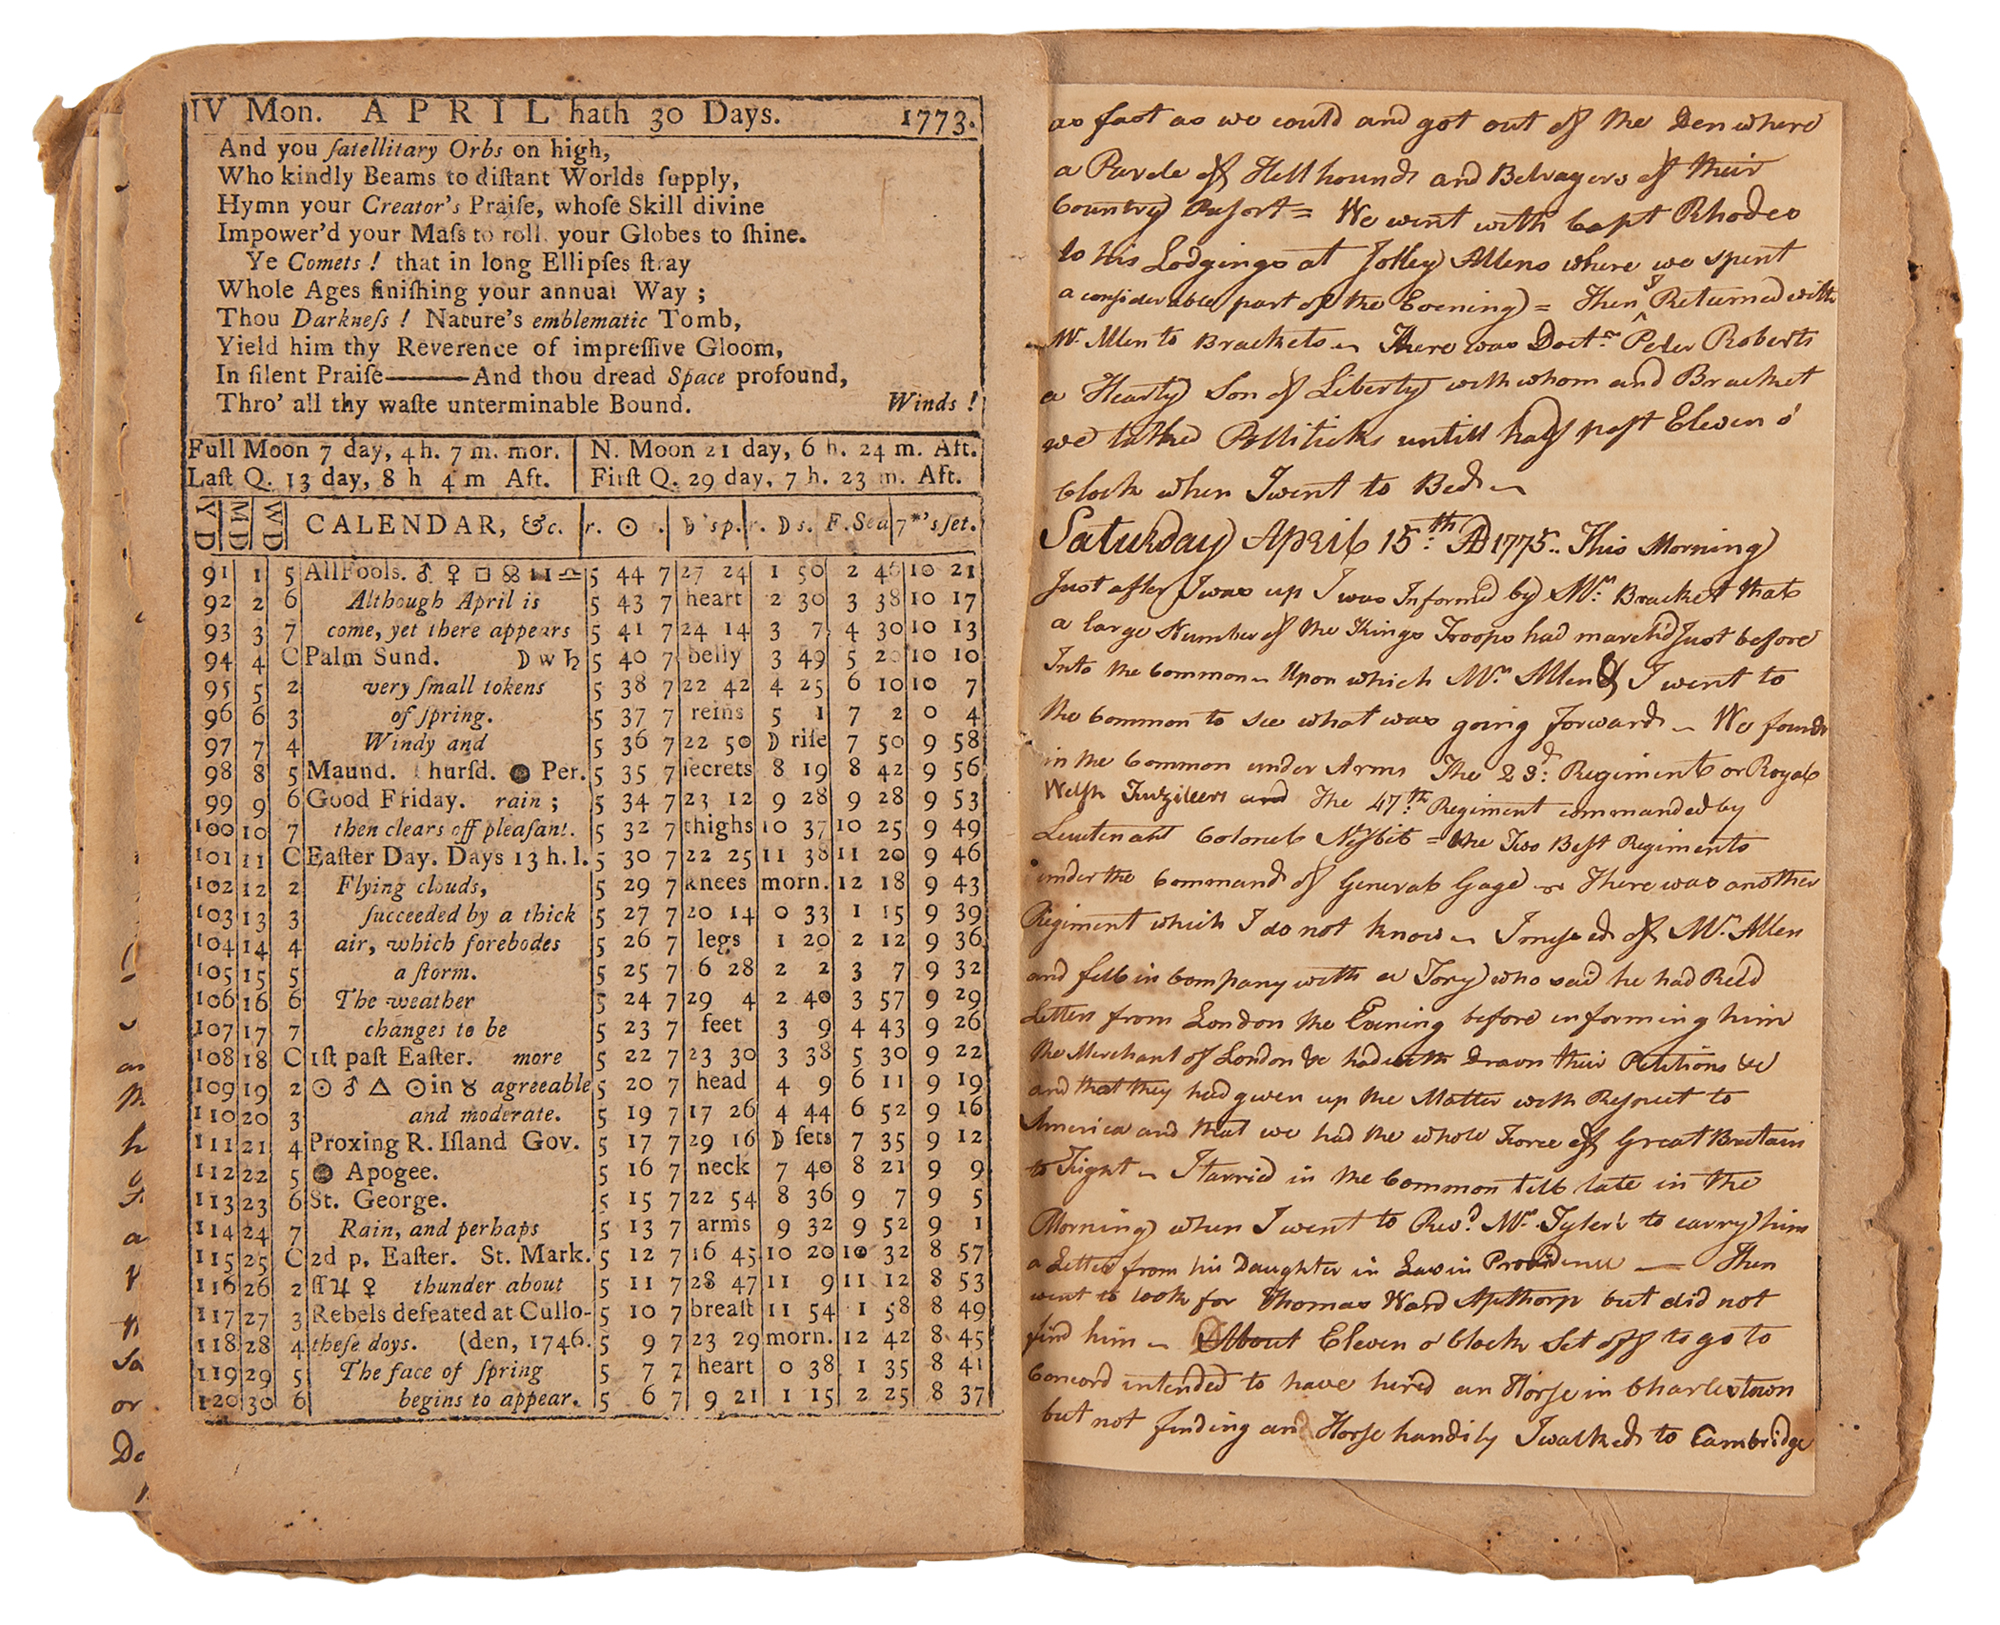 IV Mon. APRIL hath 30 Days. 1773.
And you ſatellitary Orbs on high,
Who kindly Beams to diſtant Worlds ſupply,
Hymn your Creator's Praiſe, whoſe Skill divine
Impower'd your Maſs to roll, your Globes to ſhine.
Ye Comets ! that in long Ellipſes ſtray
Whole Ages finiſhing your annual Way ;
Thou Darkneſs ! Nature's emblematic Tomb,
Yield him thy Reverence of impreſſive Gloom,
In ſilent Praiſe———And thou dread Space profound,
Thro' all thy waſte unterminable Bound. Winds !
Full Moon 7 day, 4h. 7 m. mor. N. Moon 21 day, 6 h. 24 m. Aft.
Laſt Q. 13 day, 8 h 4 m Aft. Firſt Q. 29 day, 7 h. 23 m. Aft.
YD MD WD CALENDAR, &c. r. ☉ s. ☽'sp. r. ☽ s. F. Sea 7*'s ſet.
91 1 5 All Fools. ♂ ♀ □ ☊ 11 ♎ 5 44 7 27 24 1 50 2 46 10 21
92 2 6 Although April is 5 43 7 heart 2 30 3 38 10 17
93 3 7 come, yet there appears 5 41 7 24 14 3 7 4 30 10 13
94 4 C Palm Sund. ☽ w ♄ 5 40 7 belly 3 49 5 20 10 10
95 5 2 very ſmall tokens 5 38 7 22 42 4 25 6 10 10 7
96 6 3 of ſpring. 5 37 7 reins 5 1 7 2 0 4
97 7 4 Windy and 5 36 7 22 50 ☽ riſe 7 50 9 58
98 8 5 Maund. Thurſd. ● Per. 5 35 7 ſecrets 8 19 8 42 9 56
99 9 6 Good Friday. rain ; 5 34 7 23 12 9 28 9 28 9 53
100 10 7 then clears off pleaſant. 5 32 7 thighs 10 37 10 25 9 49
101 11 C Eaſter Day. Days 13 h. l. 5 30 7 22 25 11 38 11 20 9 46
102 12 2 Flying clouds, 5 29 7 knees morn. 12 18 9 43
103 13 3 ſucceeded by a thick 5 27 7 20 14 0 33 1 15 9 39
104 14 4 air, which forebodes 5 26 7 legs 1 20 2 12 9 36
105 15 5 a ſtorm. 5 25 7 6 28 2 2 3 7 9 32
106 16 6 The weather 5 24 7 29 4 2 40 3 57 9 29
107 17 7 changes to be 5 23 7 feet 3 9 4 43 9 26
108 18 C 1ſt paſt Eaſter. more 5 22 7 23 30 3 38 5 30 9 22
109 19 2 ☉ ♂ △ ☉ in ♉ agreeable 5 20 7 head 4 9 6 11 9 19
110 20 3 and moderate. 5 19 7 17 26 4 44 6 52 9 16
111 21 4 Proxing R. Iſland Gov. 5 17 7 29 16 ☽ ſets 7 35 9 12
112 22 5 ● Apogee. 5 16 7 neck 7 40 8 21 9 9
113 23 6 St. George. 5 15 7 22 54 8 36 9 7 9 5
114 24 7 Rain, and perhaps 5 13 7 arms 9 32 9 52 9 1
115 25 C 2d p. Eaſter. St. Mark. 5 12 7 16 45 10 20 10 32 8 57
116 26 2 ♃ ♀ thunder about 5 11 7 28 47 11 9 11 12 8 53
117 27 3 Rebels defeated at Cullo- 5 10 7 breaſt 11 54 1 58 8 49
118 28 4 theſe doys. (den, 1746. 5 9 7 23 29 morn. 12 42 8 45
119 29 5 The face of ſpring 5 7 7 heart 0 38 1 35 8 41
120 30 6 begins to appear. 5 6 7 9 21 1 15 2 25 8 37
as fast as we could and got out of the Den where
a Parcle of Hellhounds and Betrayers of their
Country Resort = We went with Capt Rhodes
to his Lodgings at Jolley Allens where we spent
a considerable part of the Evening = Then I Returned with
Mr Allen to Brackets ~ There was Doctr Peter Roberts
a Hearty Son of Liberty with whom and Bracket
we talked Polliticks untill half past Eleven o'
Clock when I went to Bed ~
Saturday April 15th AD 1775.. This Morning
Just after I was up I was Informed by Mr. Bracket that
a large Number of the Kings Troops had march'd Just before
Into the Common ~ Upon which Mr. Allen & I went to
the Common to see what was going forward ~ We found
in the Common under Arms The 23d: Regiment or Royal
Welsh Fuzileers and The 47th Regiment commanded by
Lieutenant Colonel Nisbit = the Two Best Regiments
under the Command of General Gage ~ There was another
Regiment which I do not know ~ I missed of Mr. Allen
and fell in Company with a Tory who said he had Recd
Letters from London the Evening before informing him
the Merchant of London &c had withdrawn their Petitions &c
and that they had given up the Matter with Respect to
America and that we had the whole Force of Great Britain
to Fight ~ I tarried in the Common till late in the
Morning when I went to Revd. Mr. Tyler's to carry him
a Letter from his Daughter in Law in Providence — Then
went to look for Thomas Ward Apthorp but did not
find him ~ About Eleven o'Clock Set off to go to
Concord intended to have hired an Horse in Charlestown
but not finding an Horse handily I walked to Cambridge